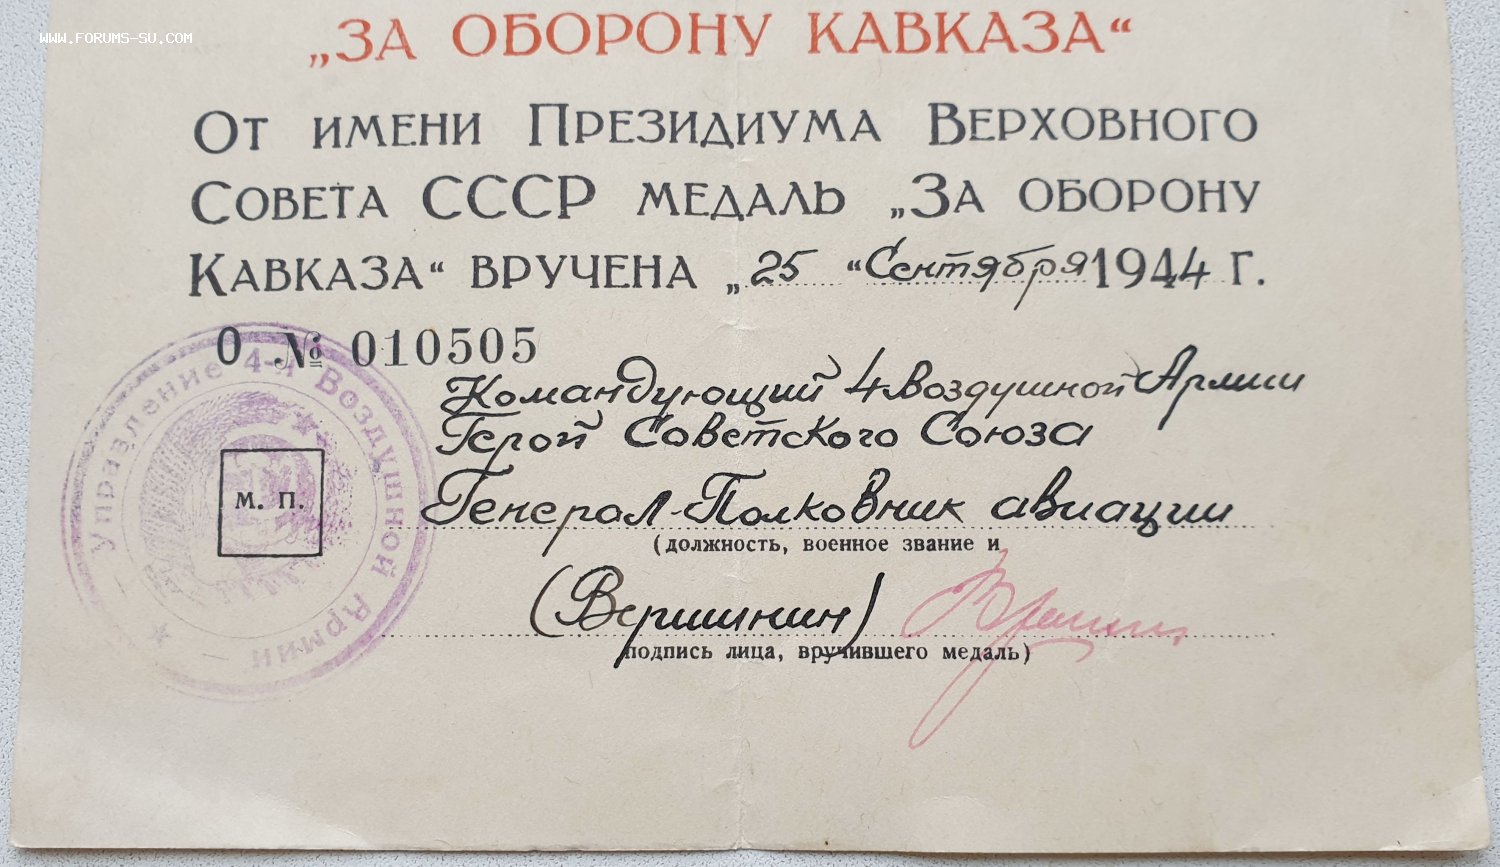 WWW.FORUMS-SU.COM
„ЗА ОБОРОНУ КАВКАЗА“
От имени Президиума Верховного
Совета СССР медаль „За оборону
Кавказа“ вручена „25 “ Сентября 1944 г.
О № 010505
Командующий 4 Воздушной Армии
Герой Советского Союза
Генерал-Полковник авиации
(должность, военное звание и
(Вершинин)
подпись лица, вручившего медаль)
М. П.
Управление 4-й Воздушной Армии